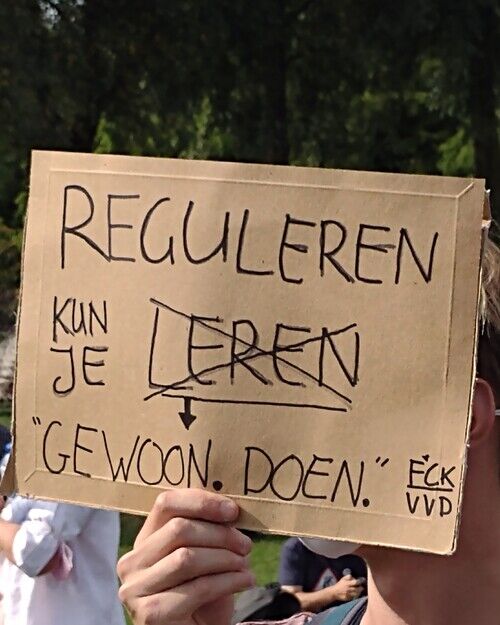 REGULEREN
KUN
JE LEREN
"GEWOON. DOEN."
F*CK
VVD